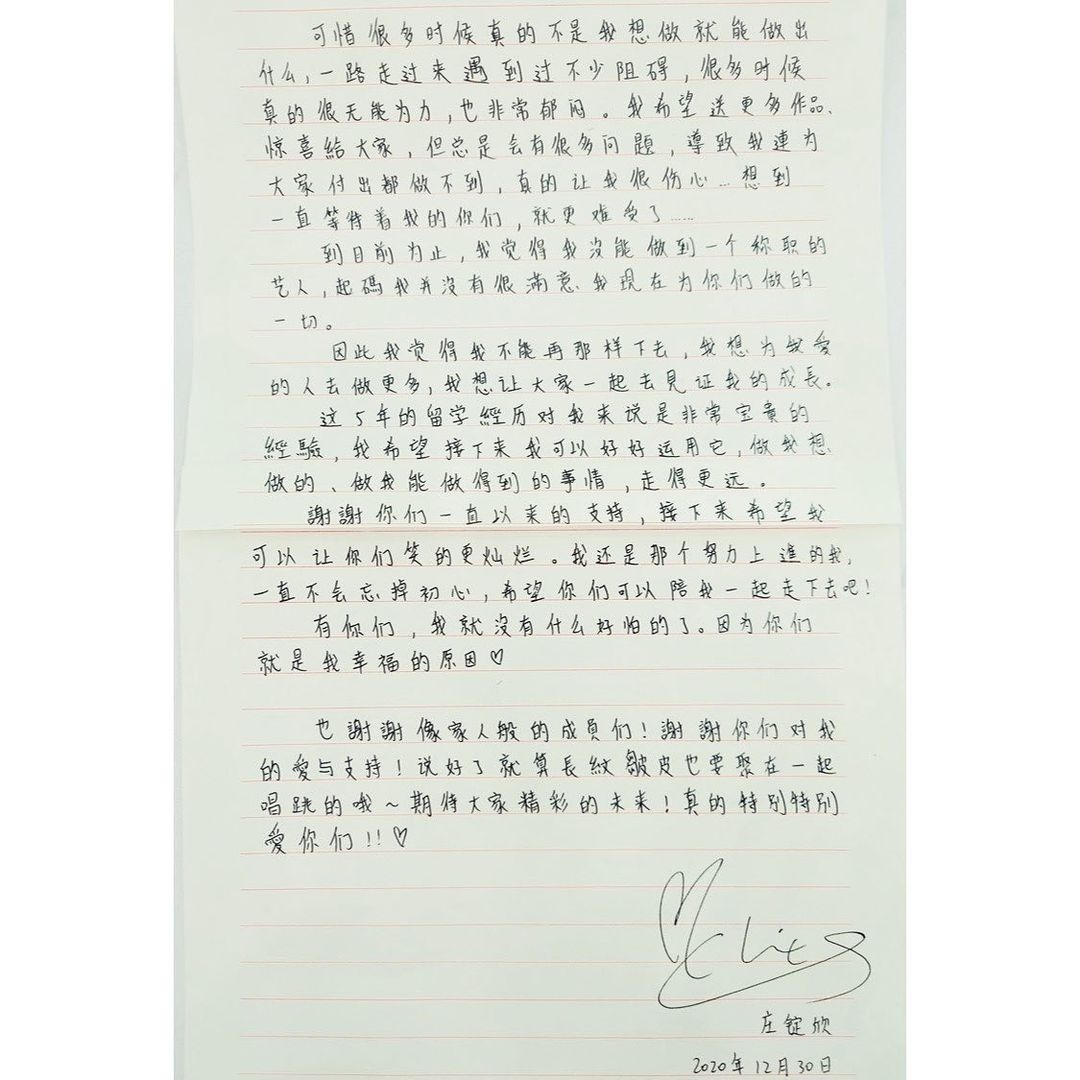 可惜很多时候真的不是我想做就能做出
什么，一路走过来遇到过不少阻碍，很多时候
真的很无能为力，也非常郁闷。我希望送更多作品、
惊喜給大家，但总是会有很多问題，導致我連为
大家付出都做不到，真的让我很伤心...想到
一直等待着我的你们，就更难受了……
到目前为止，我觉得我沒能做到一个称职的
艺人，起碼我并沒有很滿意我現在为你们做的
一切。
因此我觉得我不能再那样下去，我想为我愛
的人去做更多，我想让大家一起去見证我的成長。
这5年的留学經历对我来说是非常宝貴的
經驗，我希望接下来我可以好好运用它，做我想
做的、做我能做得到的事情，走得更远。
謝謝你们一直以来的支持，接下来希望我
可以让你们笑的更灿烂。我还是那个努力上進的我，
一直不会忘掉初心，希望你们可以陪我一起走下去吧！
有你们，我就沒有什么好怕的了。因为你们
就是我幸福的原因♡
也謝謝像家人般的成員们！謝謝你们对我
的愛与支持！说好了就算長紋皺皮也要聚在一起
唱跳的哦～期待大家精彩的未来！真的特别特别
愛你们！！♡
庄錠欣
2020年12月30日